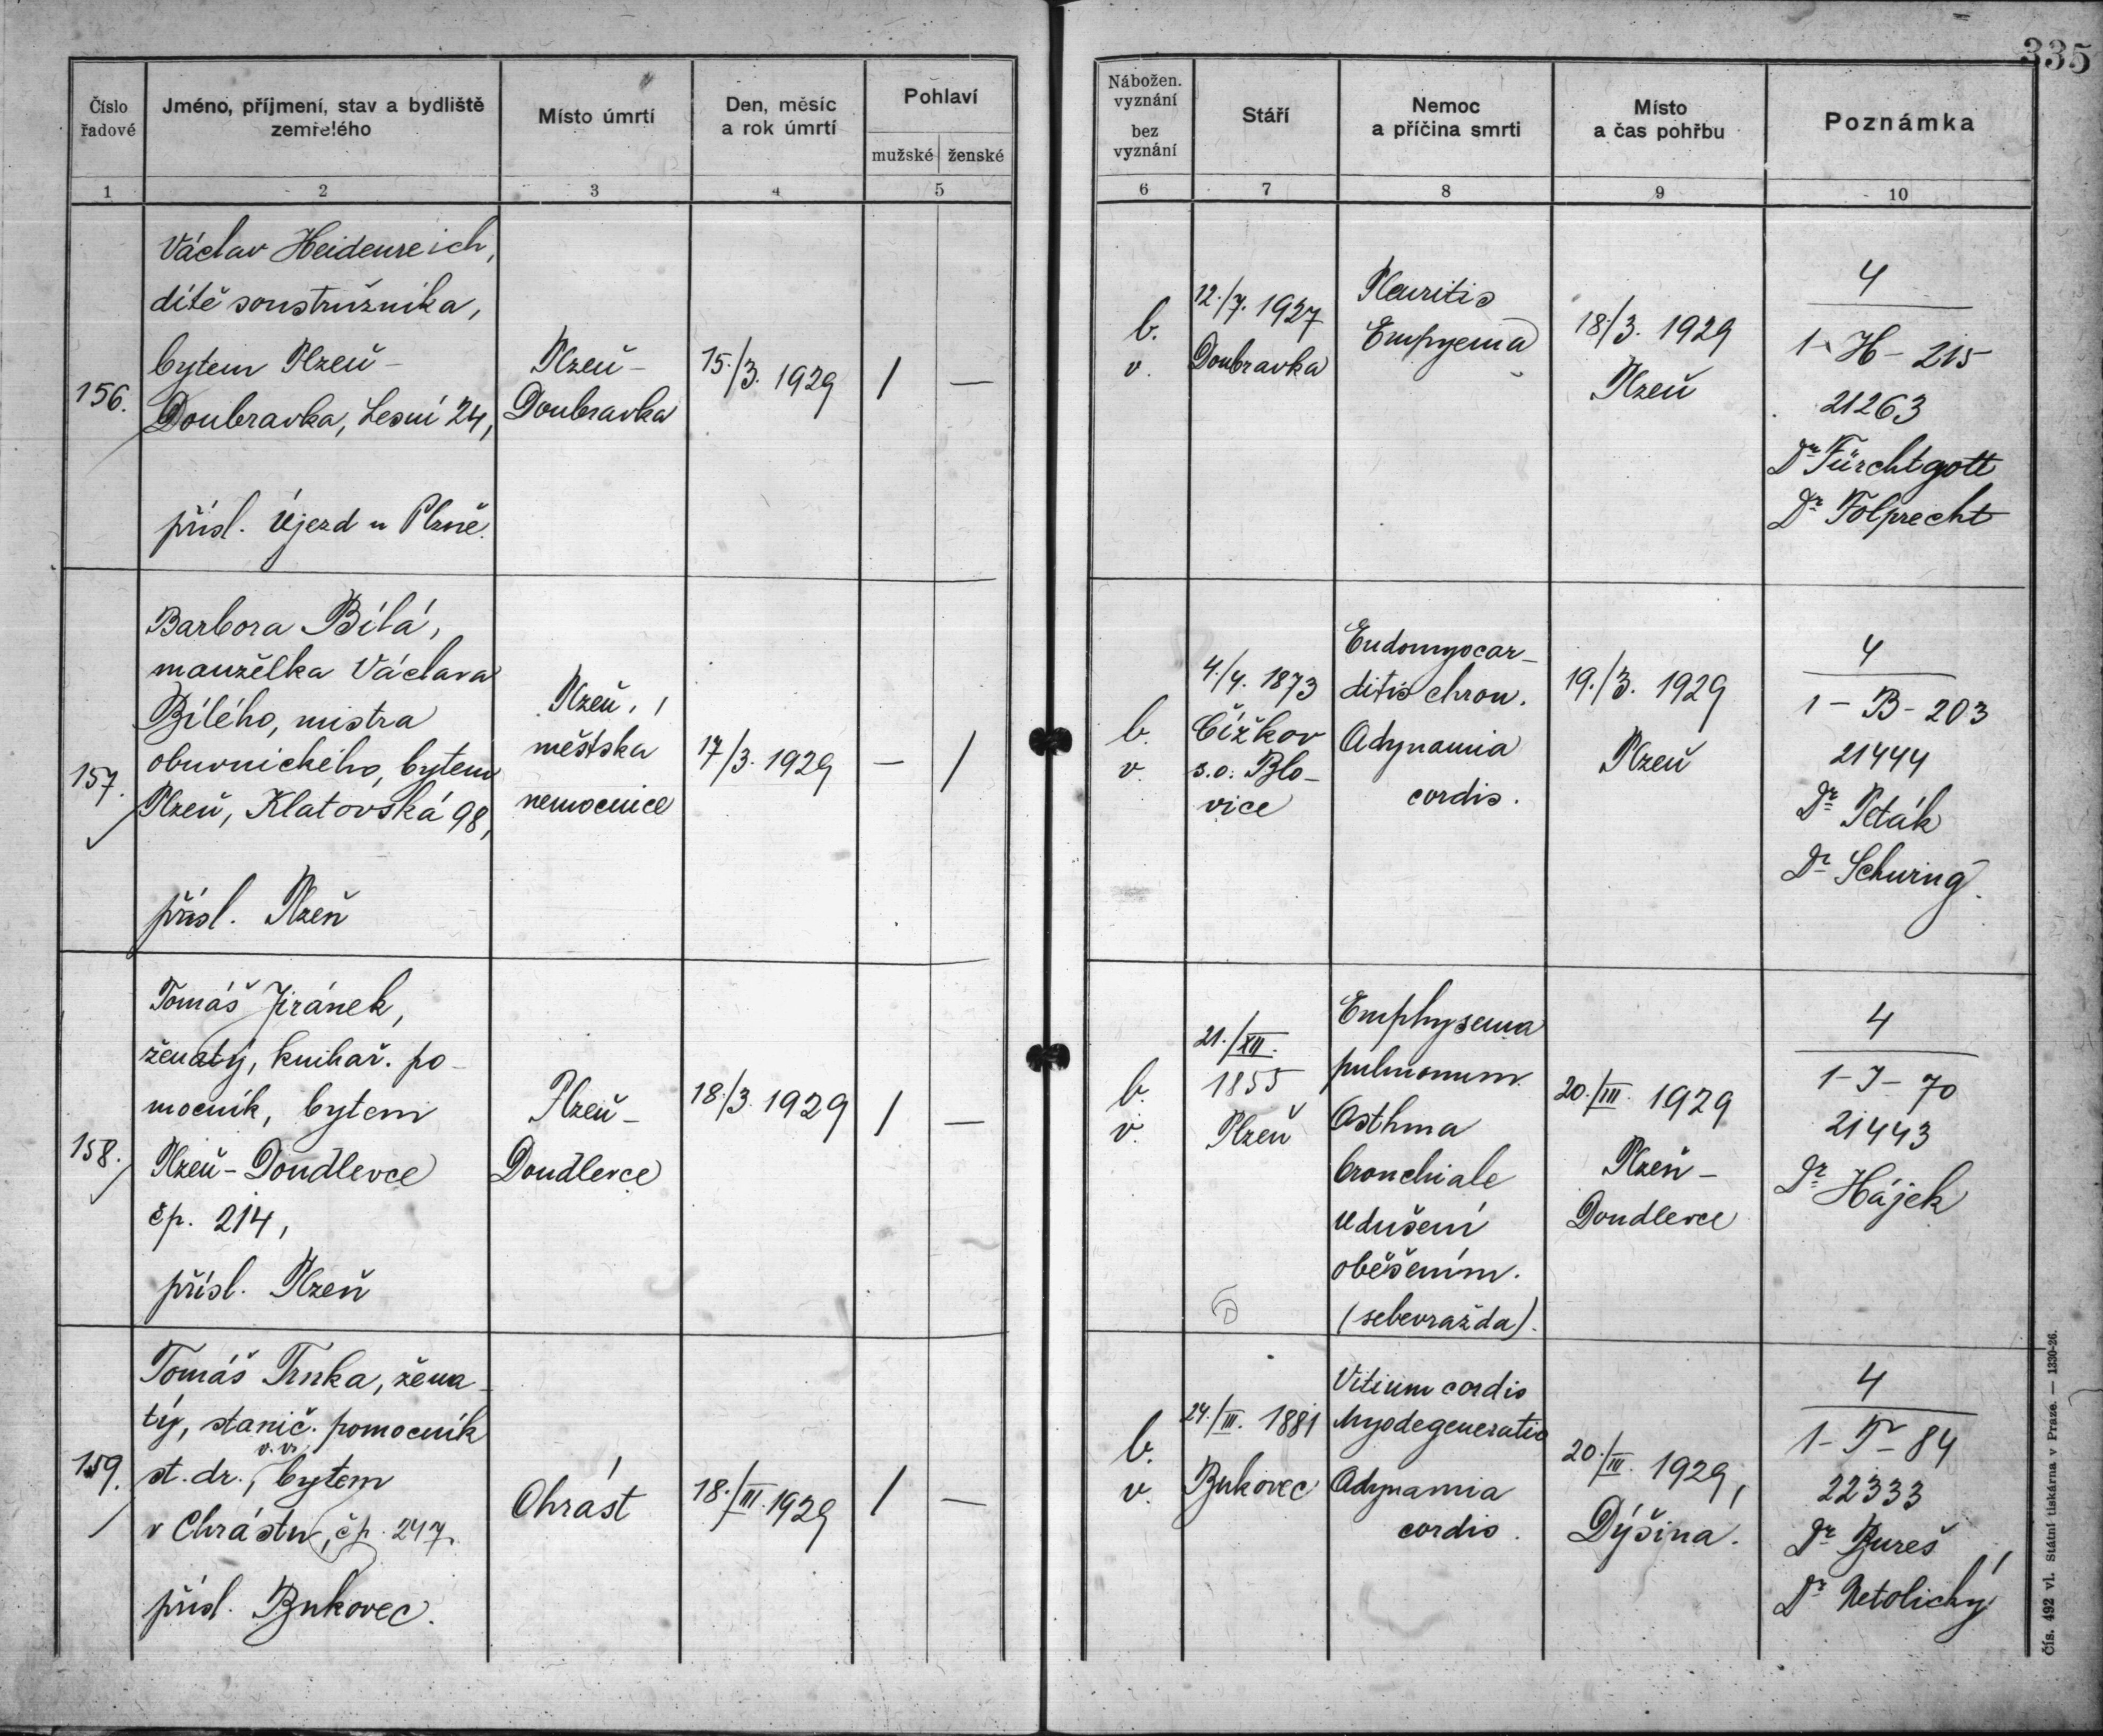 335
Číslo
řadové
Jméno, příjmení, stav a bydliště
zemřelého
Místo úmrtí
Den, měsíc
a rok úmrtí
Pohlaví
mužské ženské
1 2 3 4 5
Nábožen.
vyznání
bez
vyznání
Stáří
Nemoc
a příčina smrti
Místo
a čas pohřbu
Poznámka
6 7 8 9 10
156.
Václav Heidenreich,
dítě soustružníka,
bytem Plzeň -
Doubravka, Lesní 24,
přísl. Újezd u Plzně.
Plzeň -
Doubravka
15./3. 1929
/ —
b.
v.
12./7. 1927
Doubravka
Pleuritis
Empyema
18./3. 1929
Plzeň
4
1 - H - 215
21263
Dr Fürchtgott
Dr Folprecht
157.
Barbora Bílá,
manželka Václava
Bílého, mistra
obuvnického, bytem
Plzeň, Klatovská 98,
přísl. Plzeň
Plzeň,
městska
nemocnice
17/3. 1929
— /
b.
v.
4./4. 1873
Čížkov
s.o. Blo-
vice
Endomyocar-
ditis chron.
Adynamia
cordis.
19./3. 1929
Plzeň
4
1 - B - 203
21444
Dr Peták
Dr Schwing.
158.
Tomáš Jiránek,
ženatý, knihař. po-
mocník, bytem
Plzeň - Doudlevce
čp. 214,
přísl. Plzeň
Plzeň -
Doudlevce
18./3. 1929
/ —
b.
v.
21./XII.
1855
Plzeň
Emphysema
pulmonum.
Asthma
bronchiale
Udušení
oběšením.
(sebevražda).
20./III. 1929
Plzeň -
Doudlevce
4
1 - J - 70
21443
Dr Hájek
159.
Tomáš Trnka, žena-
tý, stanič. pomocník
v. v.
st. dr., bytem
v Chrástu, čp. 247.
přísl. Bukovec.
Chrást
18./III. 1929
/ —
b.
v.
24./III. 1881
Bukovec
Vitium cordis
Myodegeneratio
Adynamia
cordis.
20./III. 1929,
Dýšina.
4
1 - T - 84
22333
Dr Bureš
Dr Netolichý
Čís. 492 vl. Státní tiskárna v Praze. — 1330-26.